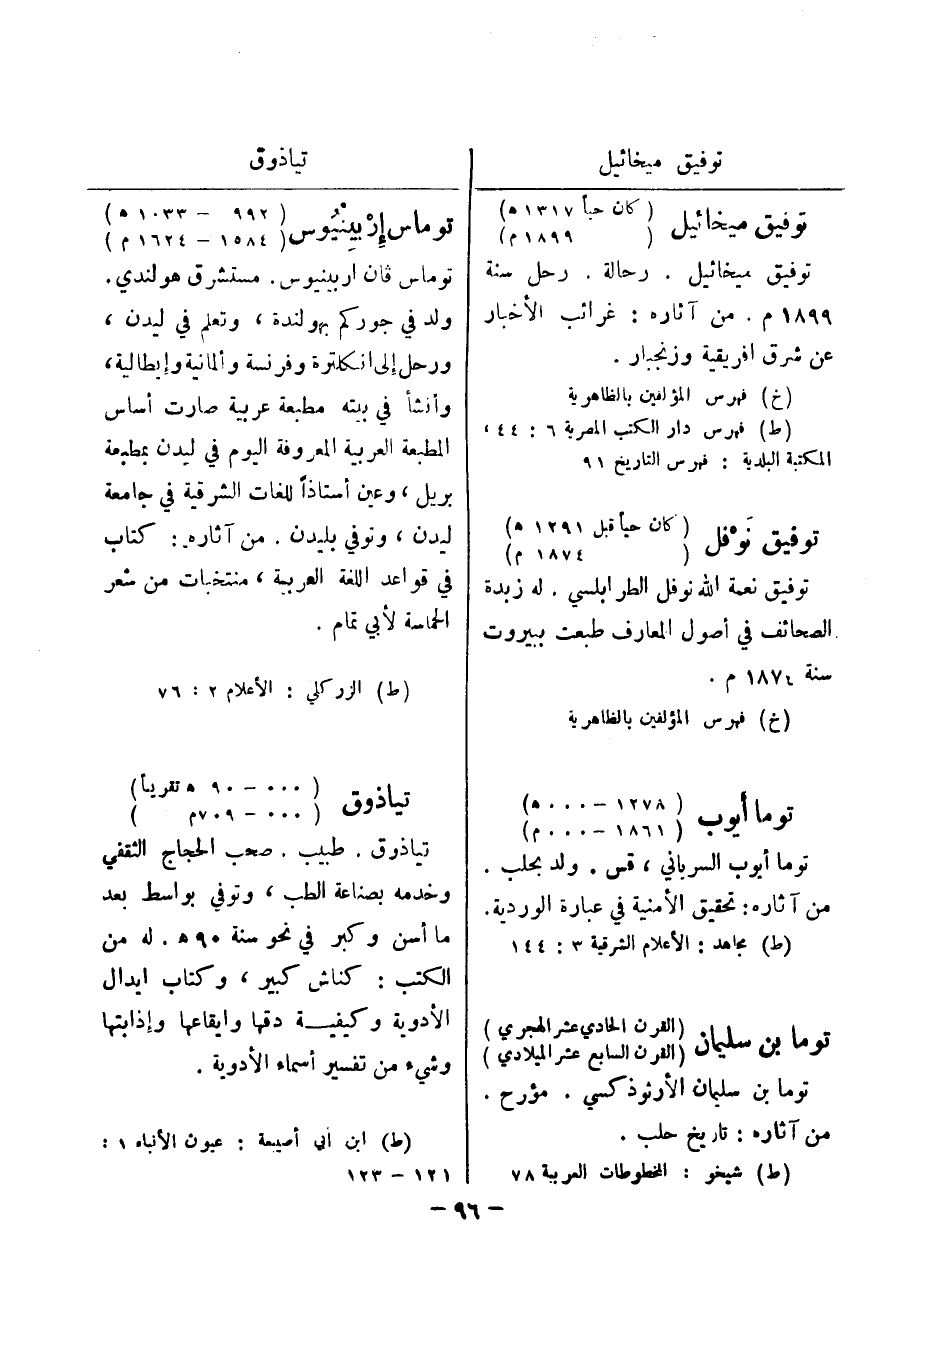 توفيق ميخائيل
توفيق ميخائيل ( كان حياً ١٣١٧ ه )
( ١٨٩٩ م )
توفيق ميخائيل . رحالة . رحل سنة
١٨٩٩ م . من آثاره : غرائب الأخبار
عن شرق افريقية وزنجبار .
(خ) فهرس المؤلفين بالظاهرية
(ط) فهرس دار الكتب المصرية ٦ : ٤٤ ،
المكتبة البلدية : فهرس التاريخ ٩١
توفيق نَوْفل ( كان حياً قبل ١٢٩١ ه )
( ١٨٧٤ م )
توفيق نعمة الله نوفل الطرابلسي . له زبدة
الصحائف في أصول المعارف طبعت ببيروت
سنة ١٨٧٤ م .
(خ) فهرس المؤلفين بالظاهرية
توما أيوب ( ١٢٧٨ – ٠٠٠ ه )
( ١٨٦١ – ٠٠٠ م )
توما أيوب السرياني ، قس . ولد بحلب .
من آثاره : تحقيق الأمنية في عبارة الوردية .
(ط) مجاهد : الأعلام الشرقية ٣ : ١٤٤
توما بن سليمان ( القرن الحادي عشر الهجري )
( القرن السابع عشر الميلادي )
توما بن سليمان الأرثوذكسي . مؤرح .
من آثاره : تاريخ حلب .
(ط) شيخو : المخطوطات العربية ٧٨
تياذوق
توماس إِرْبِينْيُوس ( ٩٩٢ – ١٠٣٣ ه )
( ١٥٨٤ – ١٦٢٤ م )
توماس ڤان اربينيوس . مستشرق هولندي .
ولد في جوركم بهولندة ، وتعلم في ليدن ،
ورحل إلى انكلترة وفرنسة وألمانية وإيطالية ،
وأنشأ في بيته مطبعة عربية صارت أساس
المطبعة العربية المعروفة اليوم في ليدن بمطبعة
بريل ، وعين أستاذاً للغات الشرقية في جامعة
ليدن ، وتوفي بليدن . من آثاره : كتاب
في قواعد اللغة العربية ، منتخبات من شعر
الحماسة لأبي تمام .
(ط) الزركلي : الأعلام ٢ : ٧٦
تياذوق ( ٠٠٠ – ٩٠ ه تقريباً )
( ٠٠٠ – ٧٠٩م )
تياذوق . طبيب . صحب الحجاج الثقفي
وخدمه بصناعة الطب ، وتوفي بواسط بعد
ما أسن وكبر في نحو سنة ٩٠ ه . له من
الكتب : كناش كبير ، وكتاب ابدال
الأدوية وكيفيـة دقها وايقاعها وإذابتها
وشيء من تفسير أسماء الأدوية .
(ط) ابن أبي أصيبعة : عيون الأنباء ١ :
١٢١ – ١٢٣
– ٩٦ –